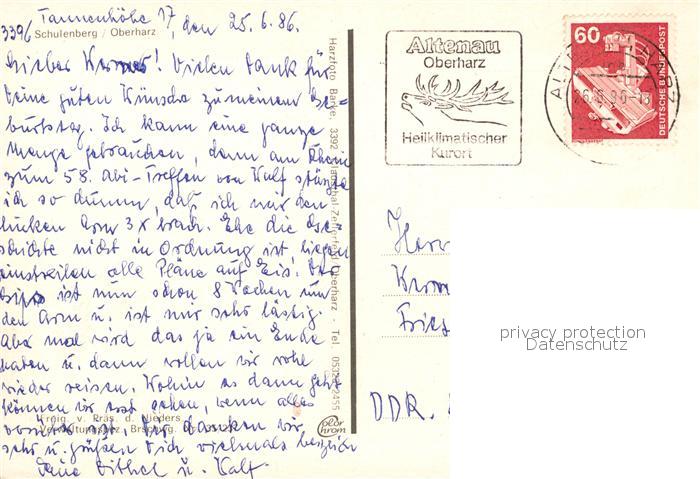 Tannenhöhe 17, den 25.6.86.
3396 Schulenberg / Oberharz
Lieber Werner! Vielen Dank für
Deine guten Wünsche zu meinem Ge-
burtstag. Ich kann eine ganze
Menge gebrauchen, denn am Rhein
zum 58. Abi-Treffen von Ralf stürzte
ich so dumm, daß ich mir den
linken Arm 3x brach. Ehe die Ge-
schichte nicht in Ordnung ist, liegen
einstweilen alle Pläne auf Eis! Der
Gips ist nun schon 8 Wochen um
den Arm u. ist mir sehr lästig.
Aber mal wird das ja ein Ende
haben u. dann wollen wir wohl
wieder reisen. Wohin es dann geht
können wir erst sehen, wenn alles
ist, Wir danken Dir
sehr u. grüßen Dich vielmals herzlich
Deine u. Ralf.
Harzfoto Barke, 3392 Clausthal-Zellerfeld / Oberharz Tel. 05323/2455
Altenau
Oberharz
Heilklimatischer
Kurort
60
DEUTSCHE BUNDESPOST
Herr
DDR.
privacy protection
Datenschutz